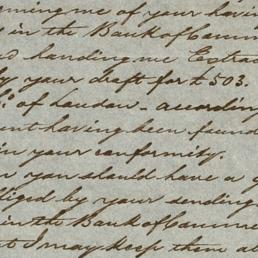 ming me of your havin
y in the Bank of Comm
nd handing me Extrac
by your draft for £503.
of Loudon - according
ent having been found
in your conformity.
you should have a
liged by your sending
in the Bank of Commer
t I may keep them a